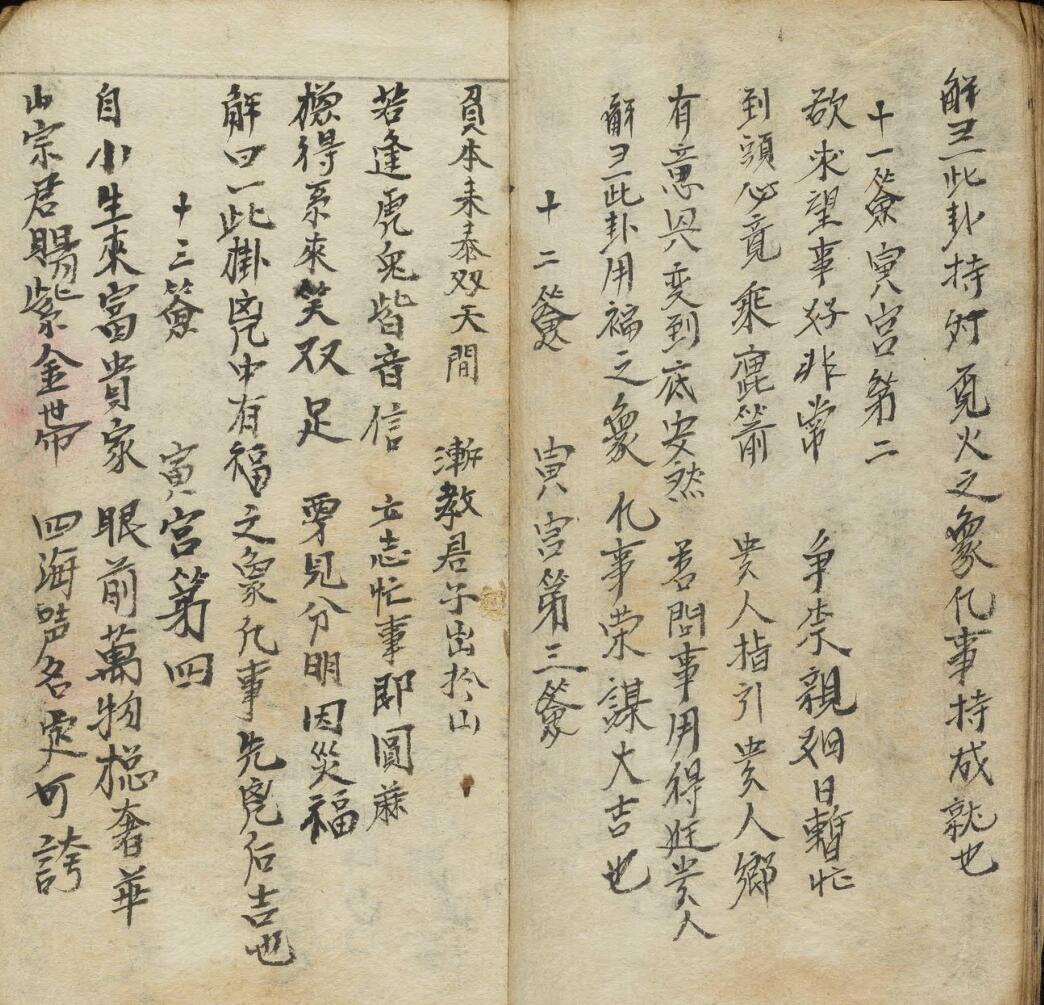 解曰此卦持灯覓火之象凡事持成就也
十一簽寅宮第二
欲求望事好非常 争柰親姻日暫忙
到頭必竟乘鹿箭 贵人指引贵人鄉
有意與变到底安然 若問事用得逢贵人
解曰此卦用福之象 凡事荣謀大吉也
十二簽 寅宮第三簽
負本未泰双天間 漸教君子出於山
若逢虎兔皆音信 立志忙事即圓
得系來笑双足 要見分明因災福
解曰一此掛凶中有福之象凡事先凶后吉也
十三簽 寅宮第四
自小生來富貴家 眼前萬物總奢華
山宗君賜紫金帶 四海聲名定可誇